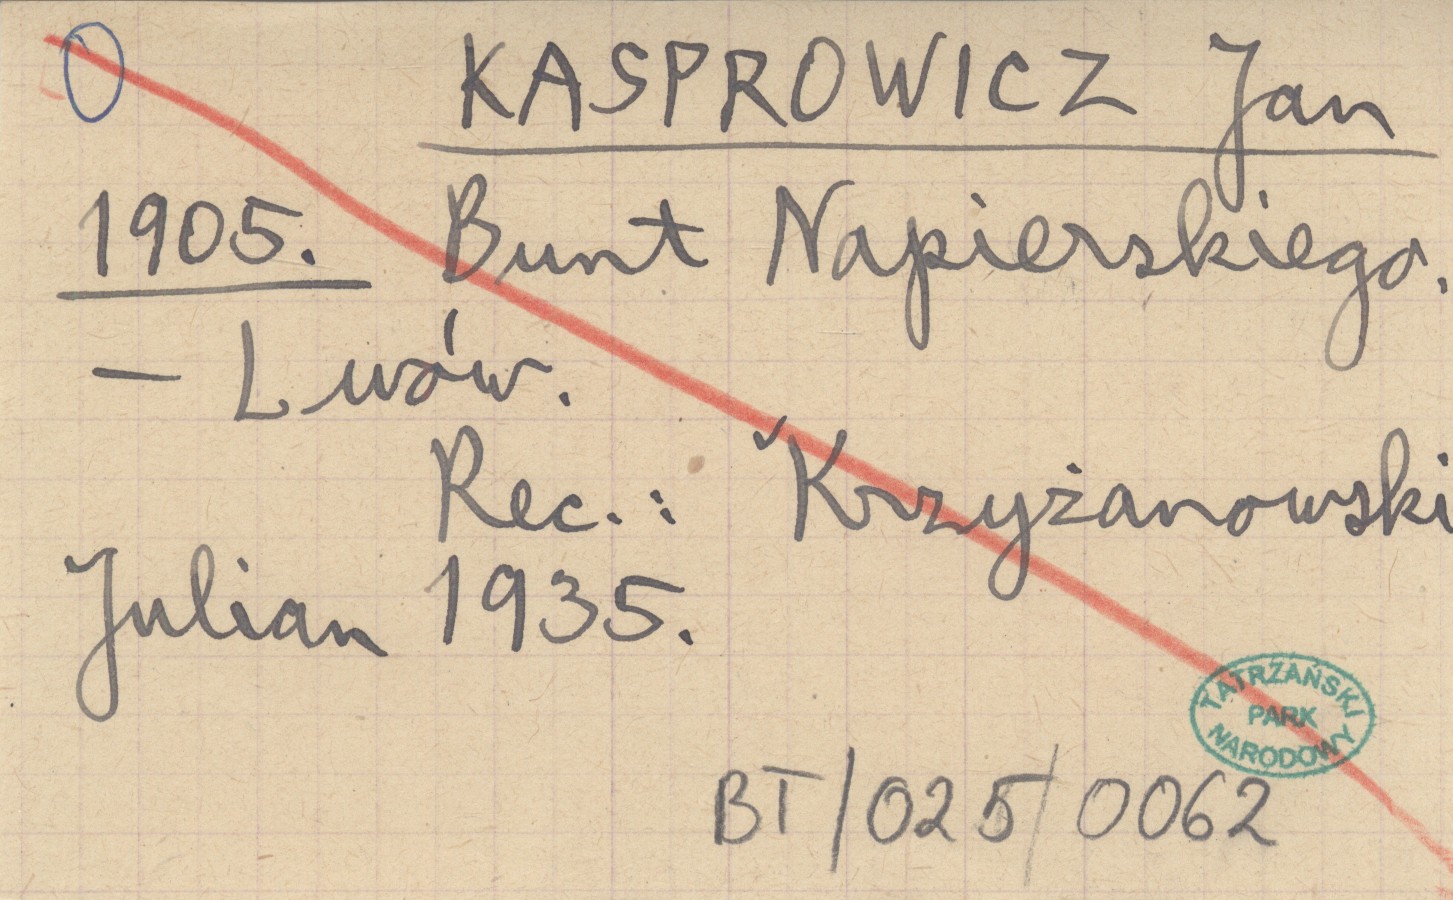 KASPROWICZ Jan
1905. Bunt Napierskiego.
— Lwów.
Rec.: Krzyżanowski
Julian 1935.
TATRZAŃSKI
PARK
NARODOWY
BT/025/0062